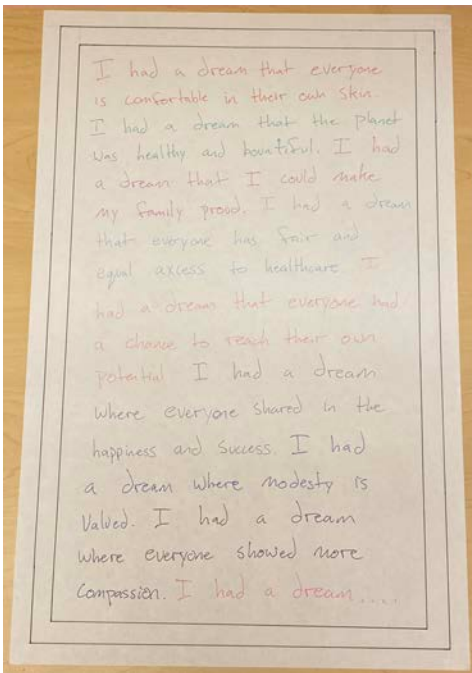 I had a dream that everyone
is comfortable in their own skin.
I had a dream that the planet
was healthy and bountiful. I had
a dream that I could make
my family proud. I had a dream
that everyone has fair and
equal axcess to healthcare. I
had a dream that everyone had
a chance to reach their own
potential I had a dream
where everyone shared in the
happiness and success. I had
a dream where modesty is
Valued. I had a dream
where everyone showed more
Compassion. I had a dream....